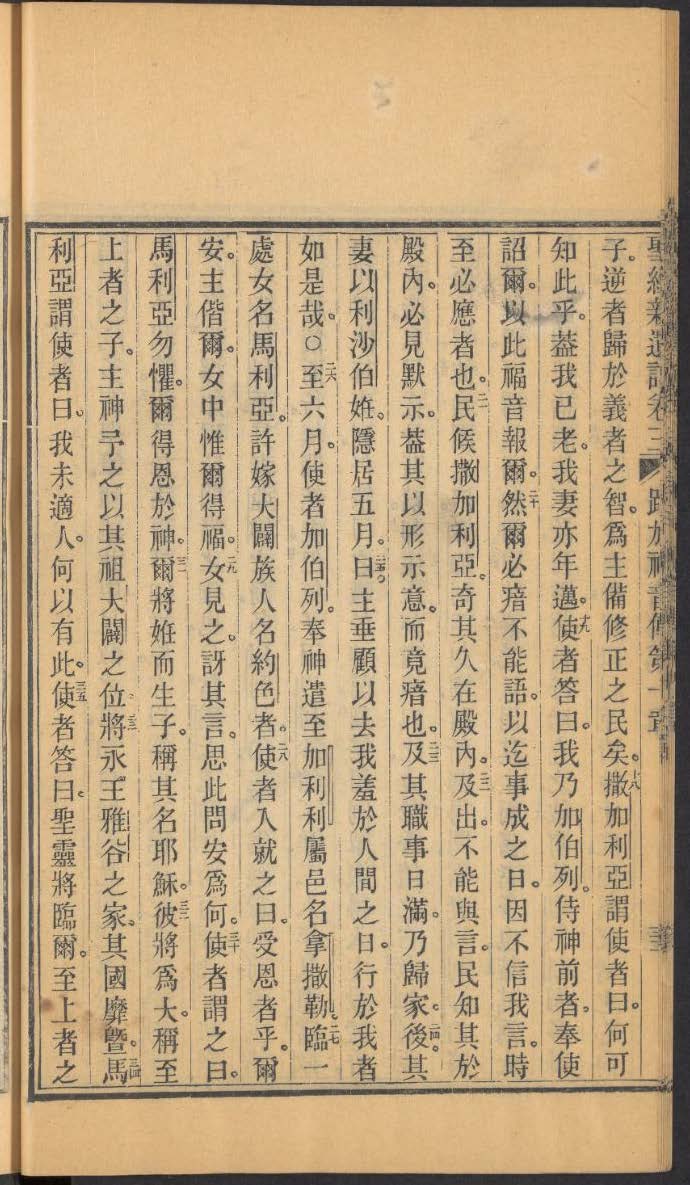 聖經新遺詔卷三 路加福音傳第一章 三
子。逆者歸於義者之智。爲主備修正之民矣。十八撒加利亞謂使者曰。何可
知此乎。葢我已老。我妻亦年邁。十九使者答曰。我乃加伯列。侍神前者。奉使
詔爾。以此福音報爾。二十然爾必瘖不能語。以迄事成之日。因不信我言。時
至必應者也。二一民候撒加利亞。奇其久在殿內。二二及出。不能與言。民知其於
殿內。必見默示。葢其以形示意。而竟瘖也。二三及其職事日滿。乃歸家。二四後。其
妻以利沙伯姙。隱居五月。二五曰。主垂顧以去我羞於人間之日。行於我者
如是哉。○二六至六月。使者加伯列。奉神遣至加利利屬邑名拿撒勒。二七臨一
處女名馬利亞。許嫁大闢族人名約色者。二八使者入就之曰。受恩者乎。爾
安。主偕爾。女中惟爾得福。二九女見之。訝其言。思此問安爲何。三十使者謂之曰。
馬利亞勿懼。爾得恩於神。三一爾將姙而生子。稱其名耶穌。三二彼將爲大。稱至
上者之子。主神予之以其祖大闢之位。三三將永王雅谷之家。其國靡曁。三四馬
利亞謂使者曰。我未適人。何以有此。三五使者答曰。聖靈將臨爾。至上者之